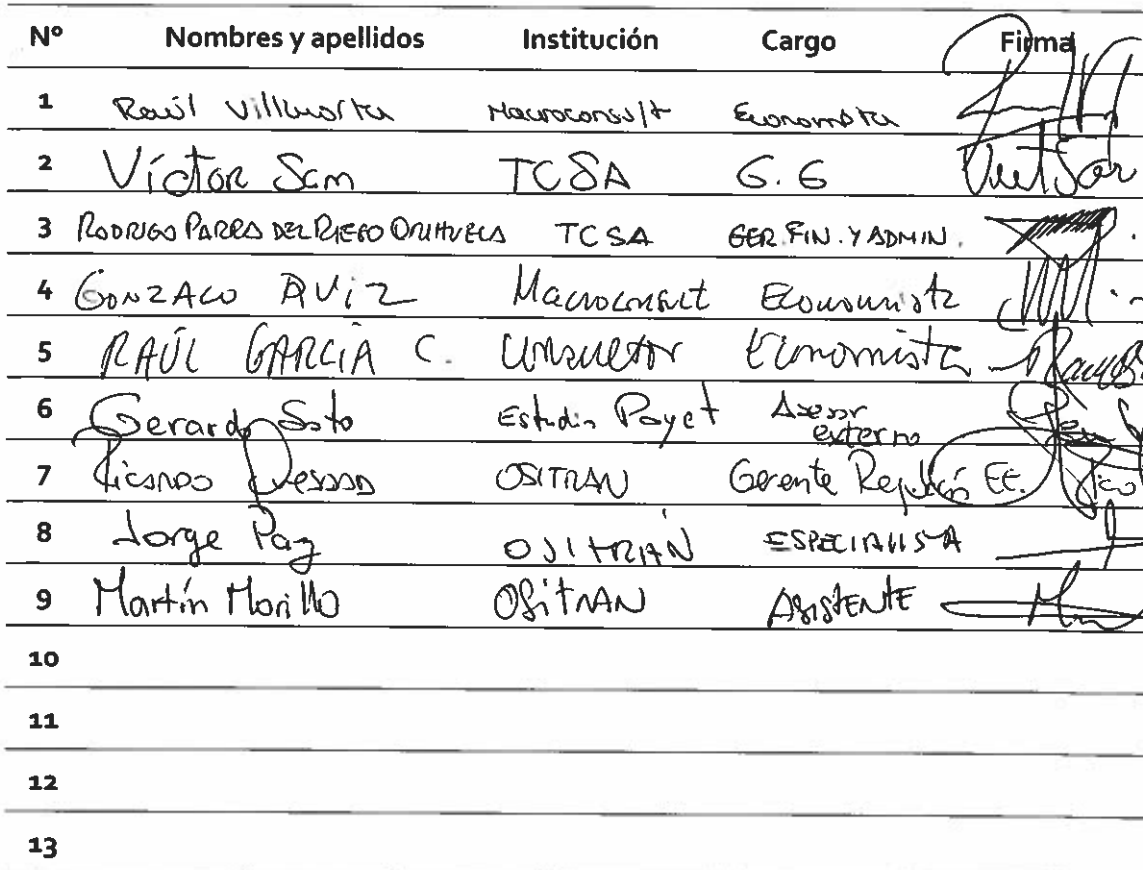 Nº Nombres y apellidos Institución Cargo Firma
1 Raúl Villmorta Macroconsult Economista
2 Víctor Sam TCSA G.G
3 RODRIGO PARRA DEL RIEGO ORIHUELA TCSA GER. FIN. Y ADMIN.
4 GONZALO RUiZ Macroconsult Economista
5 RAÚL GARCÍA C. Consultor Economista
6 Gerardo Soto Estudio Payet Asesor externo
7 Ricardo OSITRAN Gerente Regulación EE.
8 Jorge Paz OSITRAN ESPECIALISTA
9 Martín Morillo OSITRAN ASISTENTE
10
11
12
13